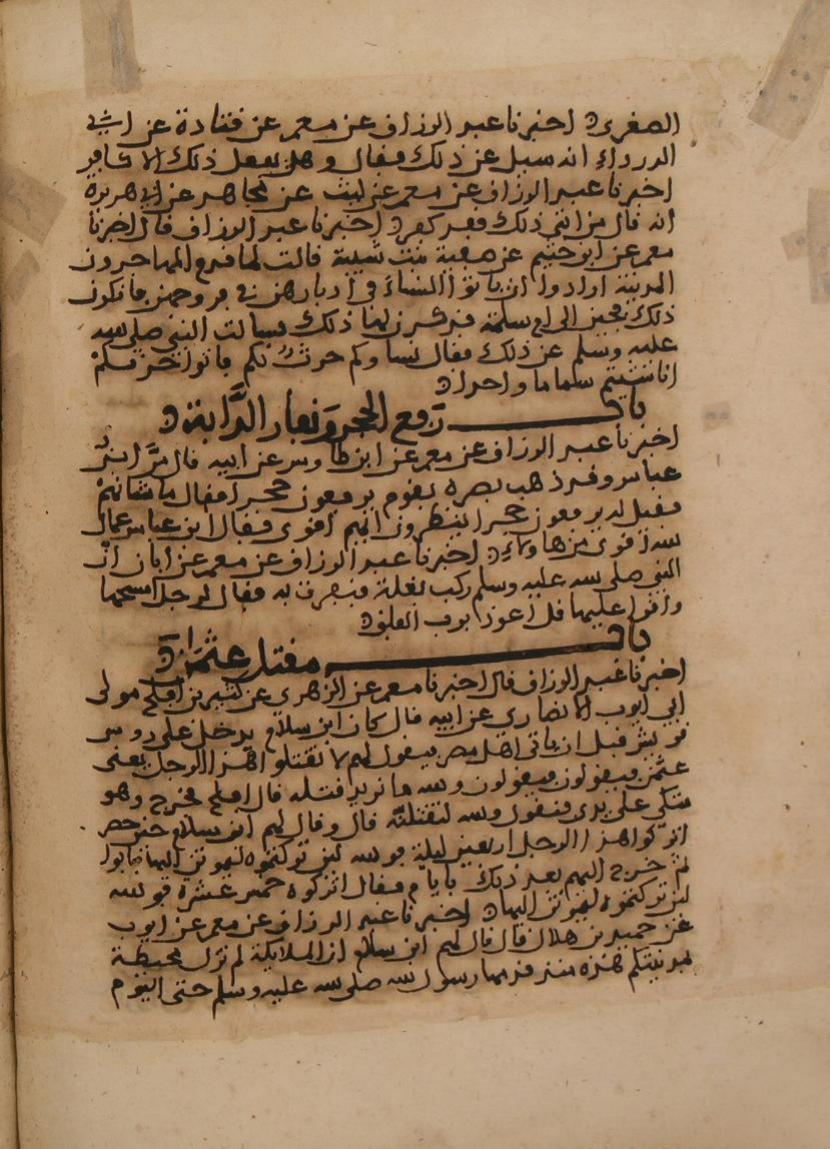 الصغرى اخبرنا عبد الرزاق عن معمر عن قتادة عن ابي
الدرداء انه سيل عن ذلك فقال وهل يفعل ذلك الا كافر
اخبرنا عبد الرزاق عن معمر عن ليث عن مجاهد عن ابي هريرة
انه قال من اتى ذلك فقد كفر اخبرنا عبد الرزاق قال اخبرنا
معمر عن ابن خثيم عن صفية بنت شيبة قالت لما قدم المهاجرون
المدينة ارادوا ان ياتوا النساء في ادبارهن في فروجهن فانكرن
ذلك فجين الى ام سلمة فذكرن لها ذلك فسالت النبي صلى الله
عليه وسلم عن ذلك فقال نساوكم حرث لكم فاتوا حرثكم
انا شيتم سماما واحدا
باب رفع الحجر ونفار الدابة
اخبرنا عبد الرزاق عن معمر عن ابن طاوس عن ابيه قال مر ابن
عباس وقد ذهب بصره بقوم يرفعون حجرا فقال ما شانهم
فقيل له يرفعون حجرا ينظرون ايهم اقوى فقال ابن عباس عمال
الله اقوى من هاولاء اخبرنا عبد الرزاق عن معمر عن ابان ان
النبي صلى الله عليه وسلم ركب بغلة فنفرت به فقال لرجل امسحها
واقرا عليها قل اعوذ برب الفلق
باب مقتل عثمان
اخبرنا عبد الرزاق قال اخبرنا معمر عن الزهري عن كثير بن افلح مولى
ابي ايوب الانصاري عن ابيه قال كان ابن سلام يدخل على روس
قريش قبل ان ياتي اهل مصر فيقول لهم لا تقتلوا هذا الرجل يعني
عثمن فيقولون فيقولون والله ما نريد قتله قال افلح فخرج وهو
متكي على يدي فيقول والله لتقتلنه قال وقال لهم ابن سلام حين حصر
اتركوا هذا الرجل اربعين ليلة فو الله لين تركتموه ليموتن اليها فابوا
ثم خرج اليهم بعد ذلك بايام فقال اتركوه خمس عشرة فو الله
لين تركتموه ليموتن اليها اخبرنا عبد الرزاق عن معمر عن ايوب
عن حميد بن هلال قال قال لهم ابن سلام ان الملايكة لم تزل محيطة
بمدينتكم هذه منذ قدمها رسول الله صلى الله عليه وسلم حتى اليوم